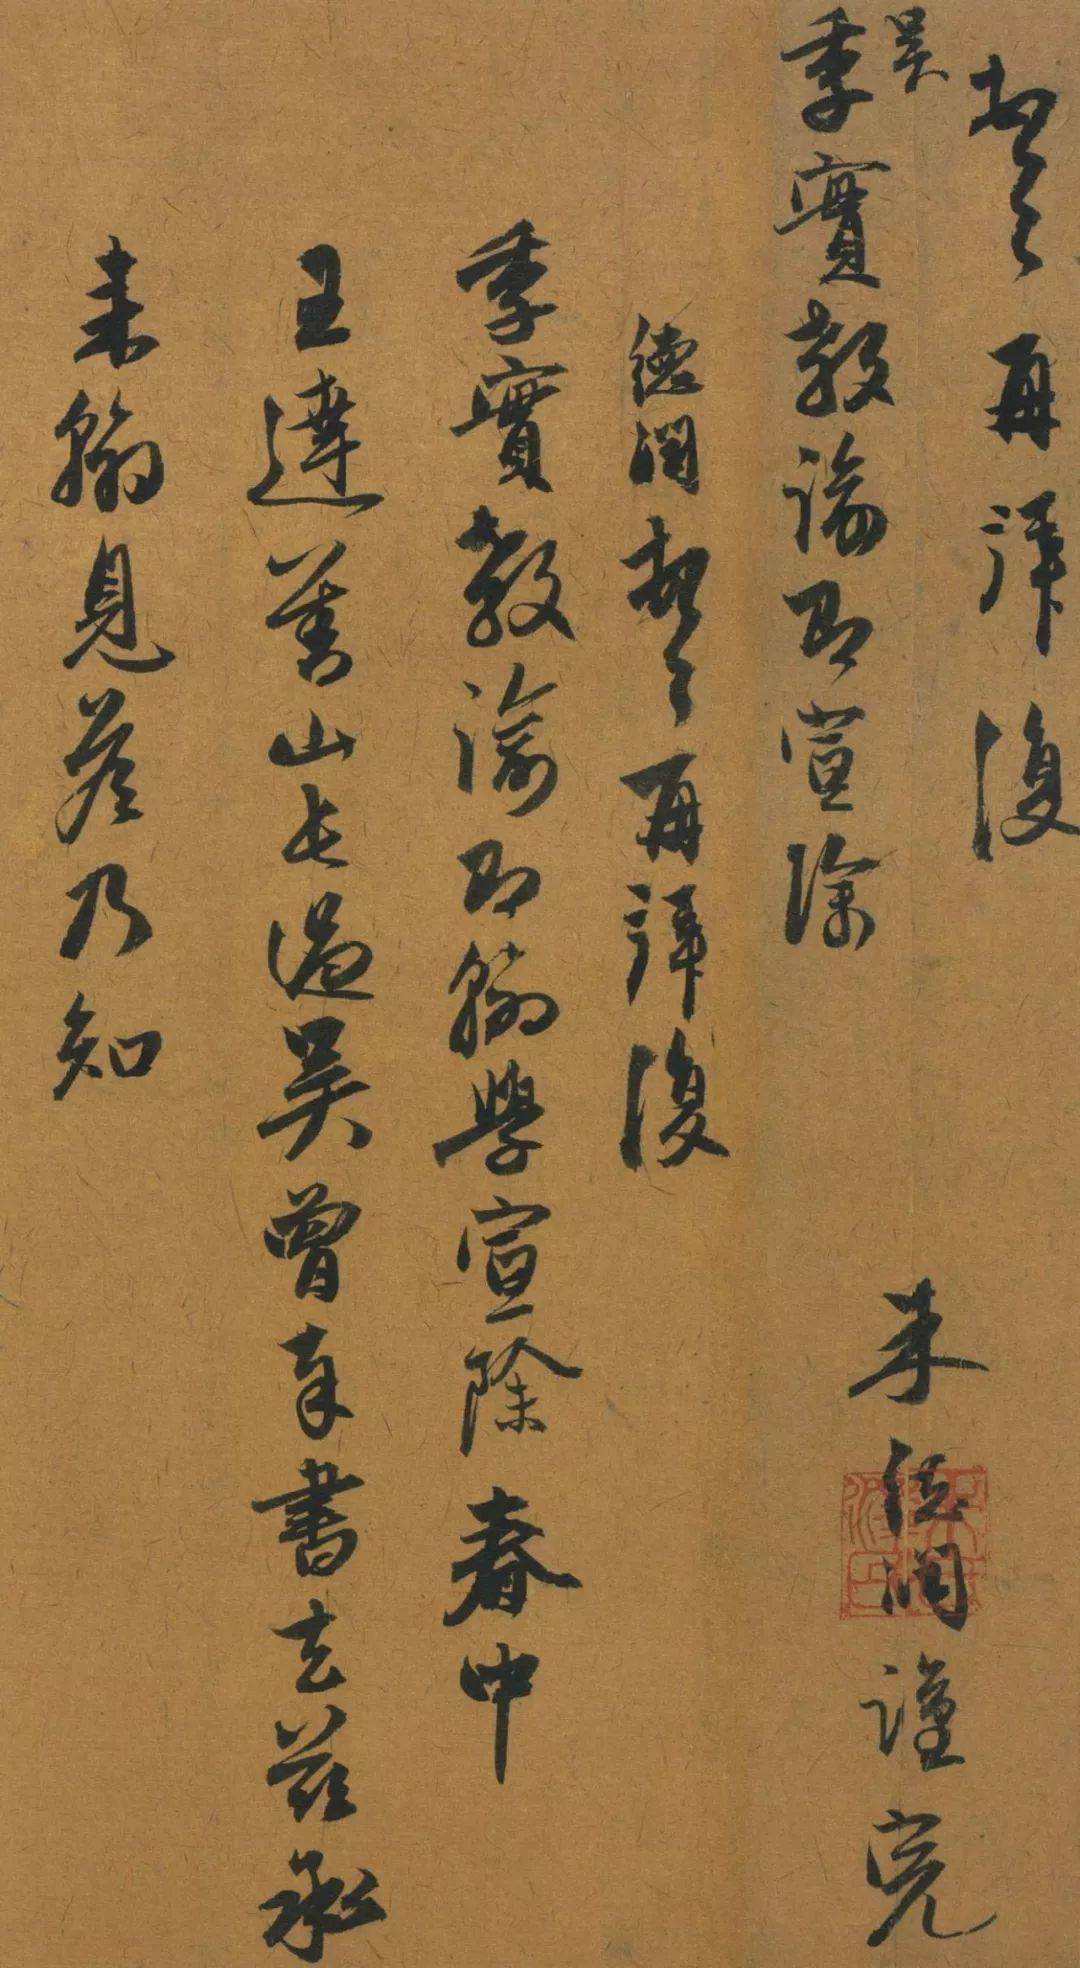 頓首再拜復
吳
季實教諭即宣除
朱德潤謹完
德潤頓首再拜復
季實教諭即翰學宣除春中
王達善山長過吳曾奉書去茲承
來翰見答乃知